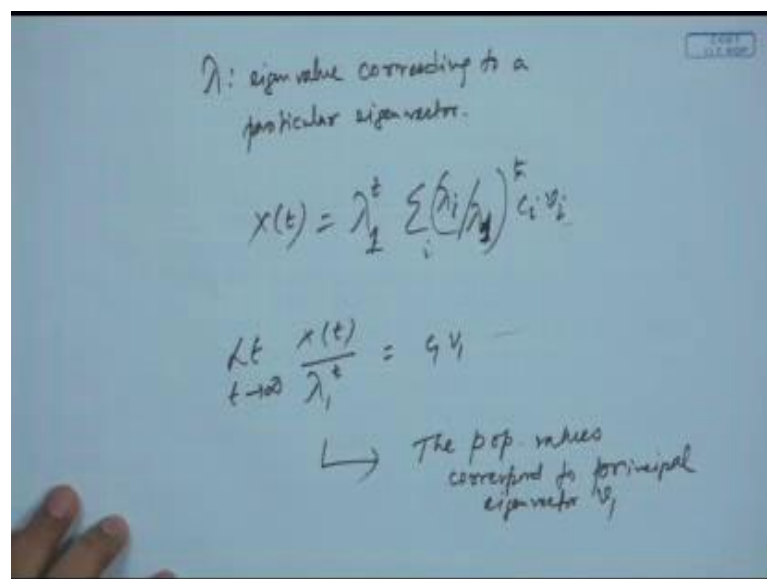 λ: eigen value correeding to a
particular eigenvector.
x(t) = λ₁ᵗ Σᵢ (λᵢ/λ₁)ᵗ cᵢ vᵢ
Lt t→∞ x(t)/λ₁ᵗ = c₁ v₁
↳ The pop. values
correspond to principal
eigenvector v₁